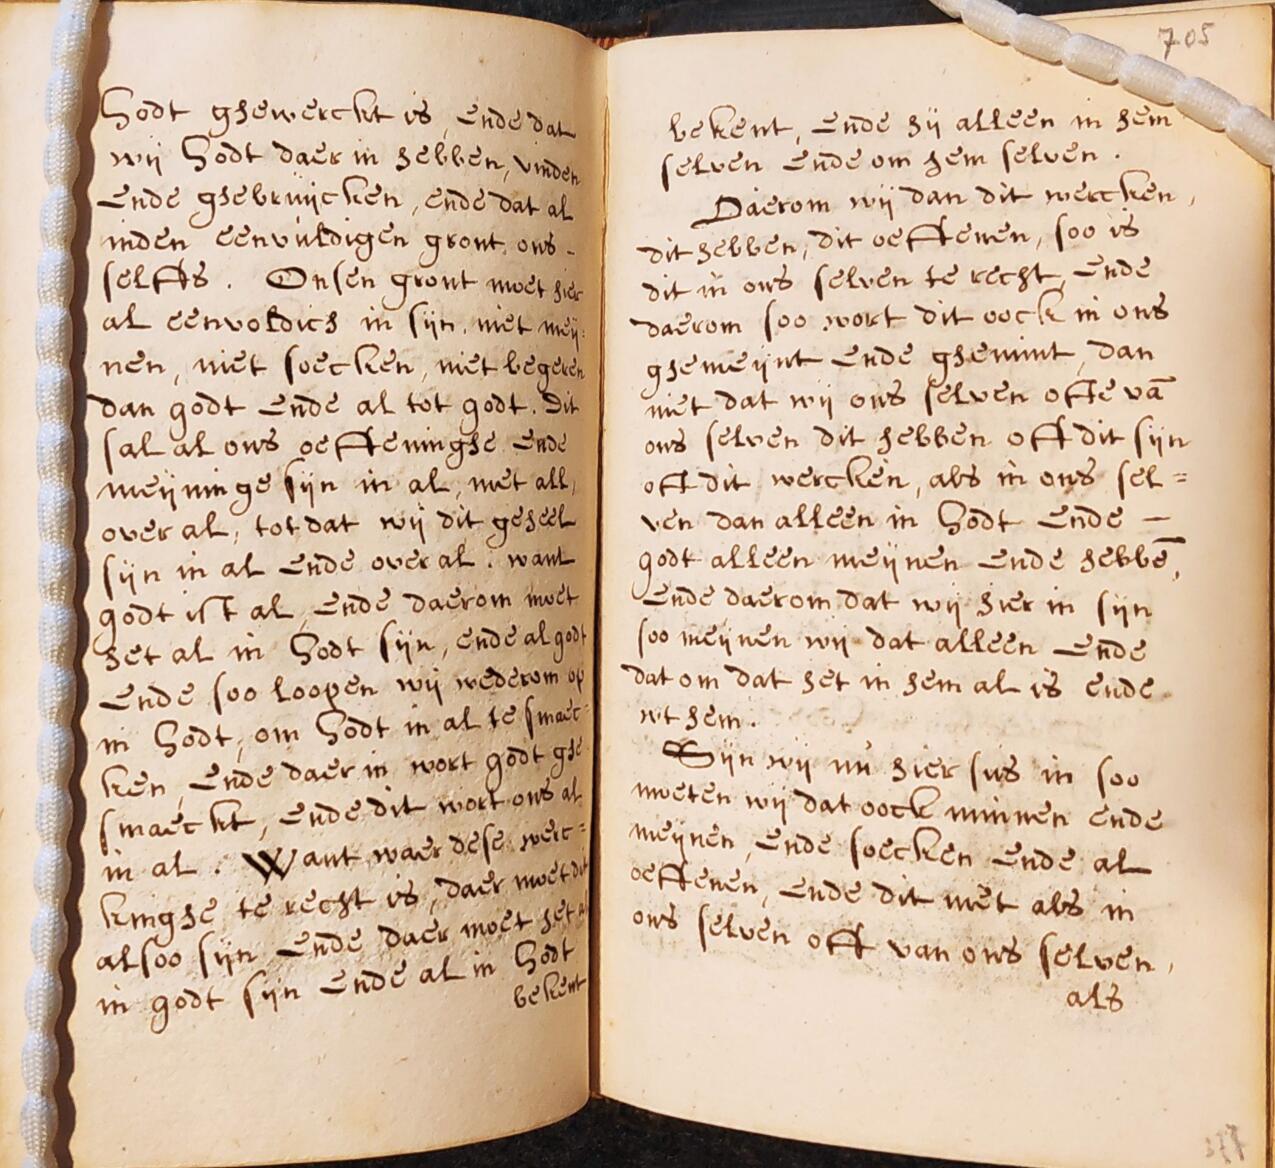 Godt ghewerckt is, ende dat
wij Godt daer in hebben, vinden
ende ghebruijcken, ende dat al
inden eenvuldigen gront ons -
selffs. Onsen gront moet hier
al eenvoldich in sijn, niet meij:
nen, niet soecken, niet begeren
dan godt ende al tot godt. Dit
sal al ons oeffeninghe ende
meijninge sijn in al, met all,
over al, tot dat wij dit geheel
sijn in al ende over al. want
godt ist al, ende daerom moet
het al in Godt sijn, ende al godt
ende soo loopen wij wederom op
in Godt, om Godt in al te smaec-
ken, ende daer in wort godt ghe
smaeckt, ende dit wort ons al
in al. Want waer dese werc=
kinghe te recht is, daer moet dit
alsoo sijn ende daer moet het al
in godt sijn ende al in Godt
bekent
705
bekent, ende hij alleen in hem
selven ende om hem selven.
Daerom wij dan dit wercken,
dit hebben, dit oeffenen, soo is
dit in ons selven te recht, ende
daerom soo wort dit oock in ons
ghemeijnt ende ghemint, dan
niet dat wij ons selven ofte vā
ons selven dit hebben oft dit sijn
oft dit wercken, als in ons sel=
ven dan alleen in Godt ende —
godt alleen meijnen ende hebbē,
ende daerom dat wij hier in sijn
soo meijnen wij dat alleen ende
dat om dat het in hem al is ende
wt hem.
Sijn wij nu hier sus in soo
moeten wij dat oock minnen ende
meijnen, ende soecken ende al
oeffenen, ende dit niet als in
ons selven oft van ons selven,
als